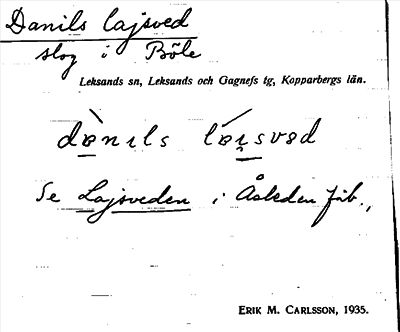 Danils Lajsved
slog i Böle
Leksands sn, Leksands och Gagnefs tg, Kopparbergs län.
dɷnıls lɷı̯svɷd
Se Lajsveden i Åsleden fäb.,
ERIK M. CARLSSON, 1935.